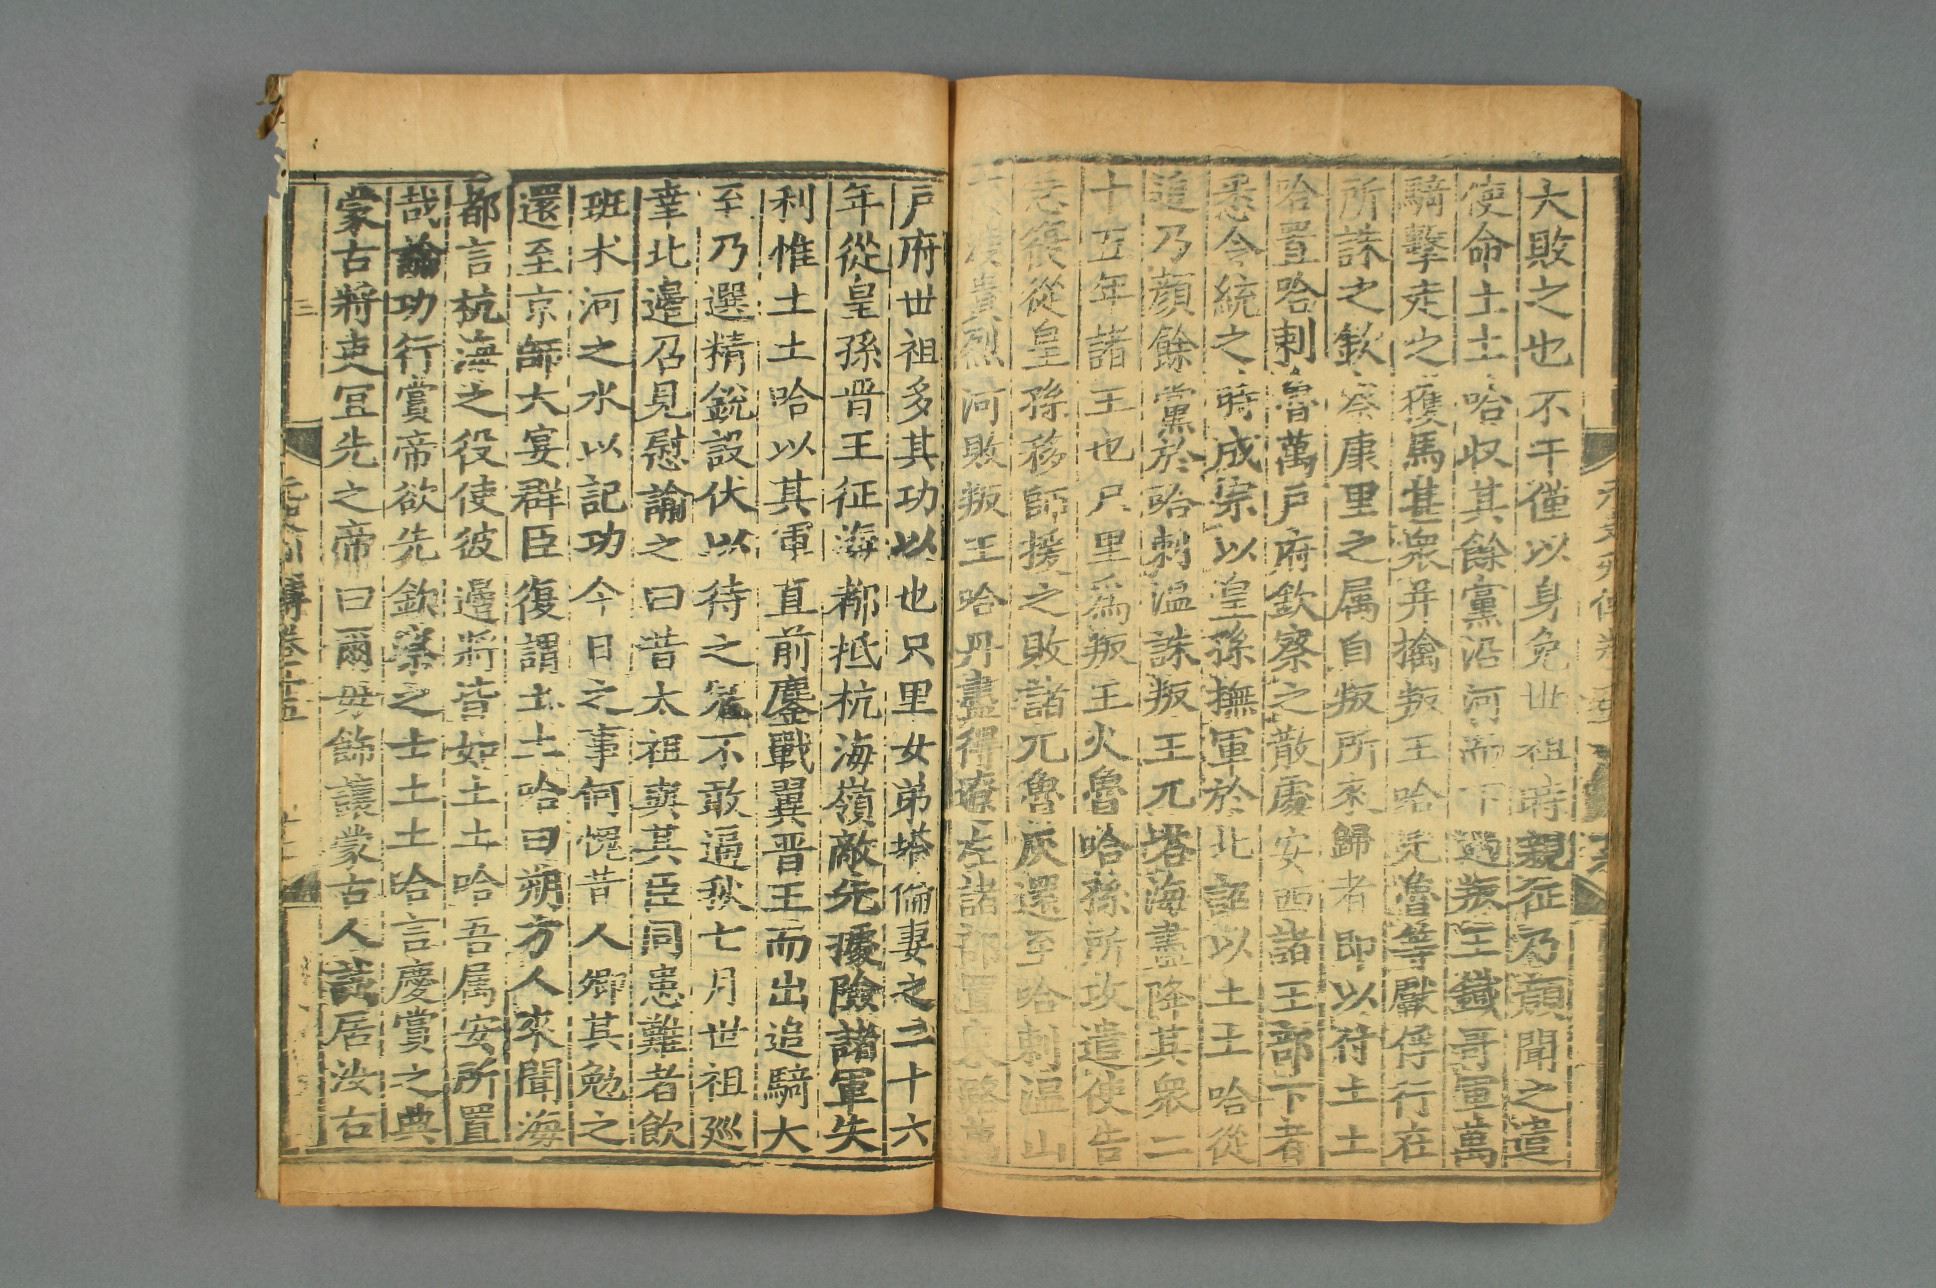 大敗之也不干僅以身免世祖時親征乃顔聞之遣
使命土土哈収其餘黨沿河而下遇叛王鐵哥軍萬
騎擊走之獲馬甚衆并擒叛王哈児魯等獻俘行在
所誅之欽察康里之属自叛所來歸者即以付土土
哈置哈剌魯萬戸府欽察之散處安西諸王部下者
悉令統之時成宗以皇孫撫軍於北詔以土土哈從
追乃顔餘黨於哈剌溫誅叛王兀塔海盡降其衆二
十五年諸王也只里爲叛王火魯哈孫所攻遣使告
急復從皇孫移師援之敗諸兀魯灰還至哈剌溫山
夜渡貴烈河敗叛王哈丹盡得遼左諸部置東路萬
戸府世祖多其功以也只里女弟塔倫妻之二十六
年從皇孫晋王征海都抵杭海嶺敵先據險諸軍失
利惟土土哈以其軍直前鏖戰翼晋王而出追騎大
至乃選精銳設伏以待之冦不敢逼秋七月世祖廵
幸北邊召見慰諭之曰昔太祖與其臣同患難者飲
班术河之水以記功今日之事何愧昔人卿其勉之
還至京師大宴群臣復謂土土哈曰朔方人來聞海
都言杭海之役使彼邊將皆如土土哈吾属安所置
哉論功行賞帝欲先欽察之士土土哈言慶賞之典
蒙古將吏宜先之帝曰爾毋飾讓蒙古人誠居汝右